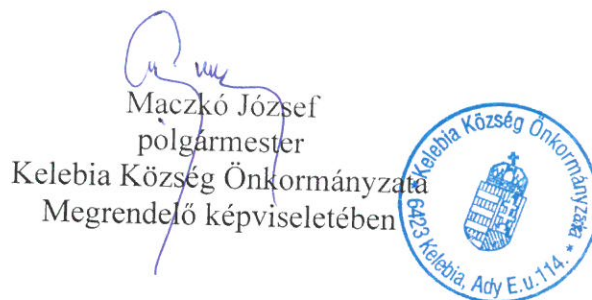 Maczkó József
polgármester
Kelebia Község Önkormányzata
Megrendelő képviseletében
Kelebia Község Önkormányzata *
6423 Kelebia, Ady E.u.114. *